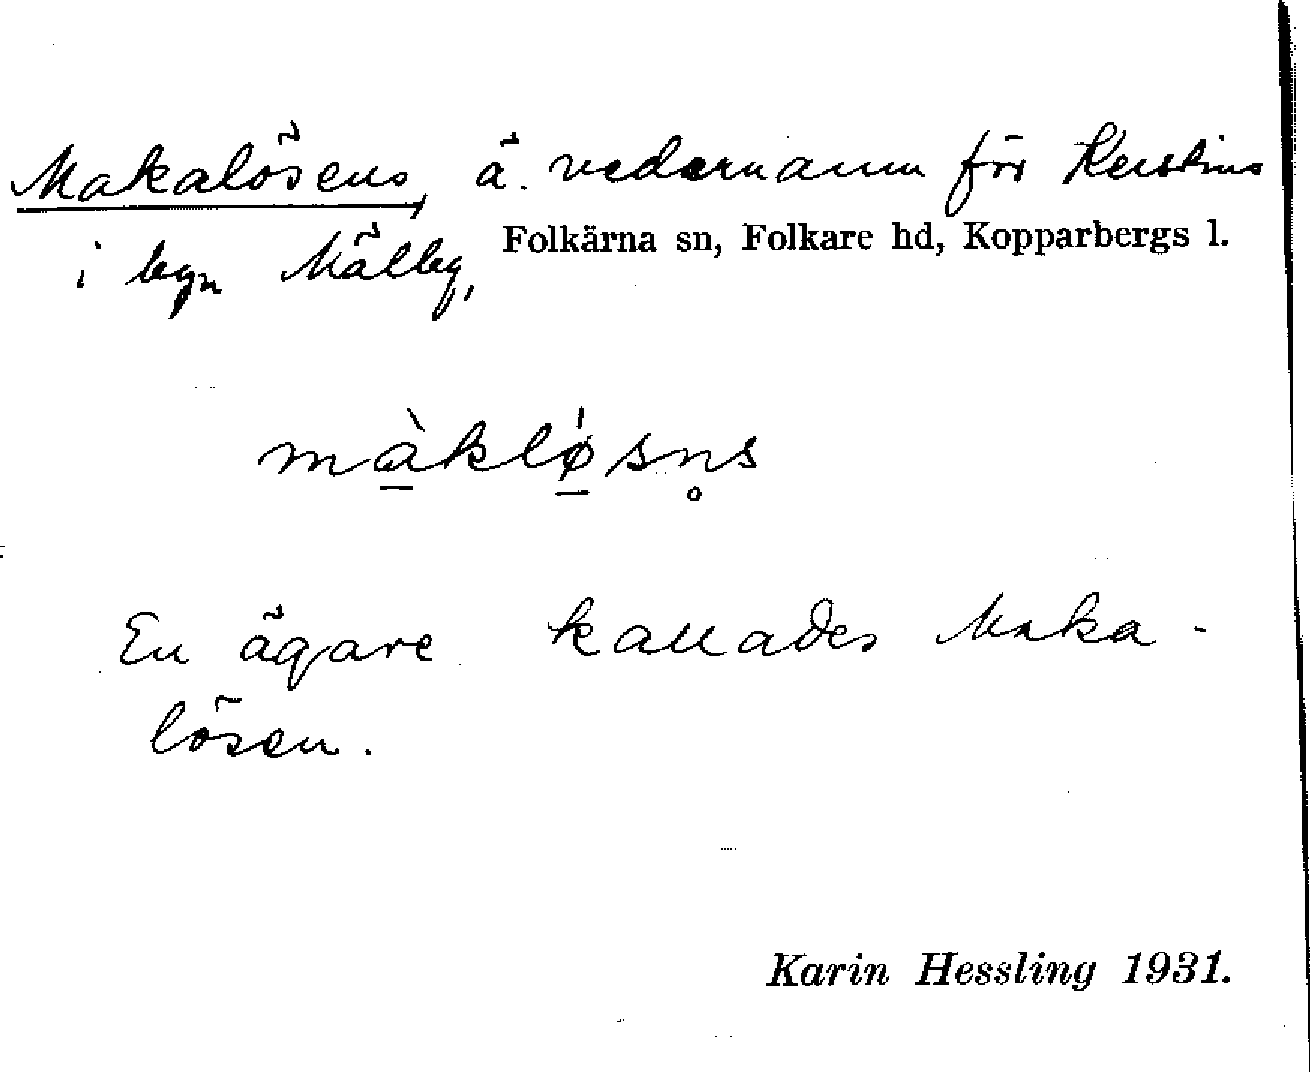 Makalösens, ä. vedernamn för Kerstins
i byn Mälby, Folkärna sn, Folkare hd, Kopparbergs l.
màkløsn̥s
En ägare kallades Maka-
lösen.
Karin Hessling 1931.